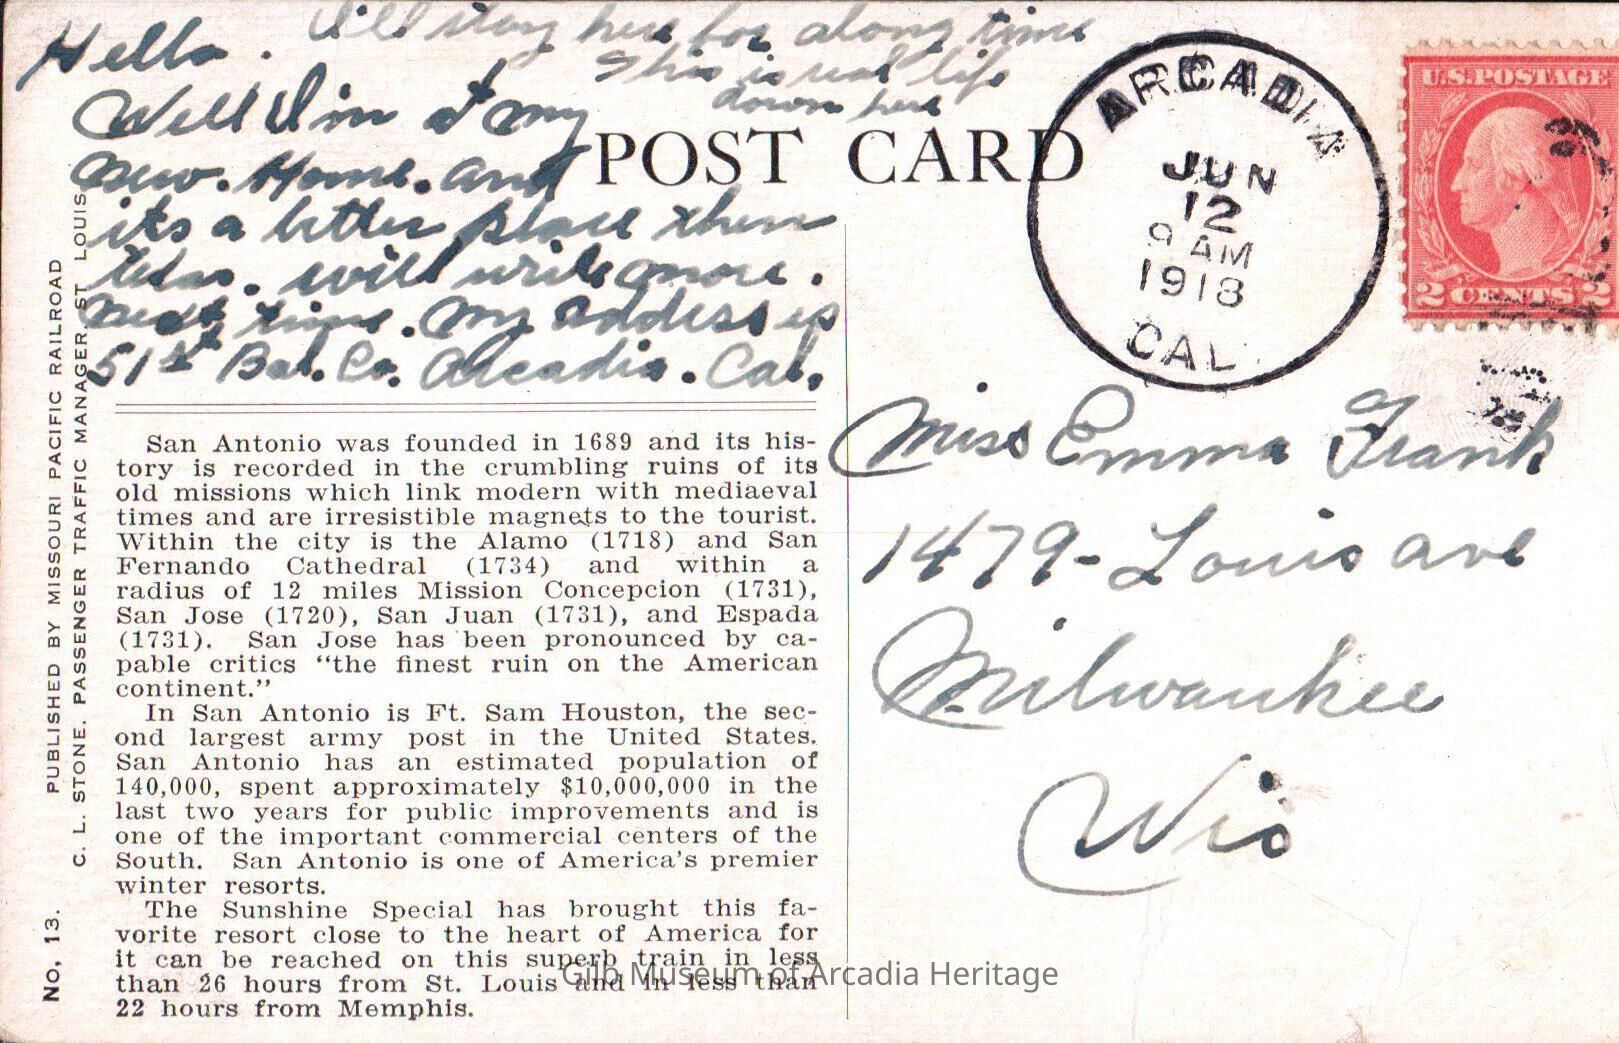 I'll stay here for along time
This is real life
down here
Hello.
Well I'm at my
new. Home. and
its a better place then
Texas. will write more.
next time. My address is
51st Bal. Co. Arcadia. Cal.
POST CARD
ARCADIA
JUN
12
9 AM
1918
CAL.
U.S. POSTAGE
2 CENTS 2
Miss Emma Frank
1479- Louis ave
Milwaukee
Wis
San Antonio was founded in 1689 and its his-
tory is recorded in the crumbling ruins of its
old missions which link modern with mediaeval
times and are irresistible magnets to the tourist.
Within the city is the Alamo (1718) and San
Fernando Cathedral (1734) and within a
radius of 12 miles Mission Concepcion (1731),
San Jose (1720), San Juan (1731), and Espada
(1731). San Jose has been pronounced by ca-
pable critics “the finest ruin on the American
continent.”
In San Antonio is Ft. Sam Houston, the sec-
ond largest army post in the United States.
San Antonio has an estimated population of
140,000, spent approximately $10,000,000 in the
last two years for public improvements and is
one of the important commercial centers of the
South. San Antonio is one of America's premier
winter resorts.
The Sunshine Special has brought this fa-
vorite resort close to the heart of America for
it can be reached on this superb train in less
than 26 hours from St. Louis and in less than
22 hours from Memphis.
NO. 13. PUBLISHED BY MISSOURI PACIFIC RAILROAD
C. L. STONE. PASSENGER TRAFFIC MANAGER, ST LOUIS
Gilb Museum of Arcadia Heritage